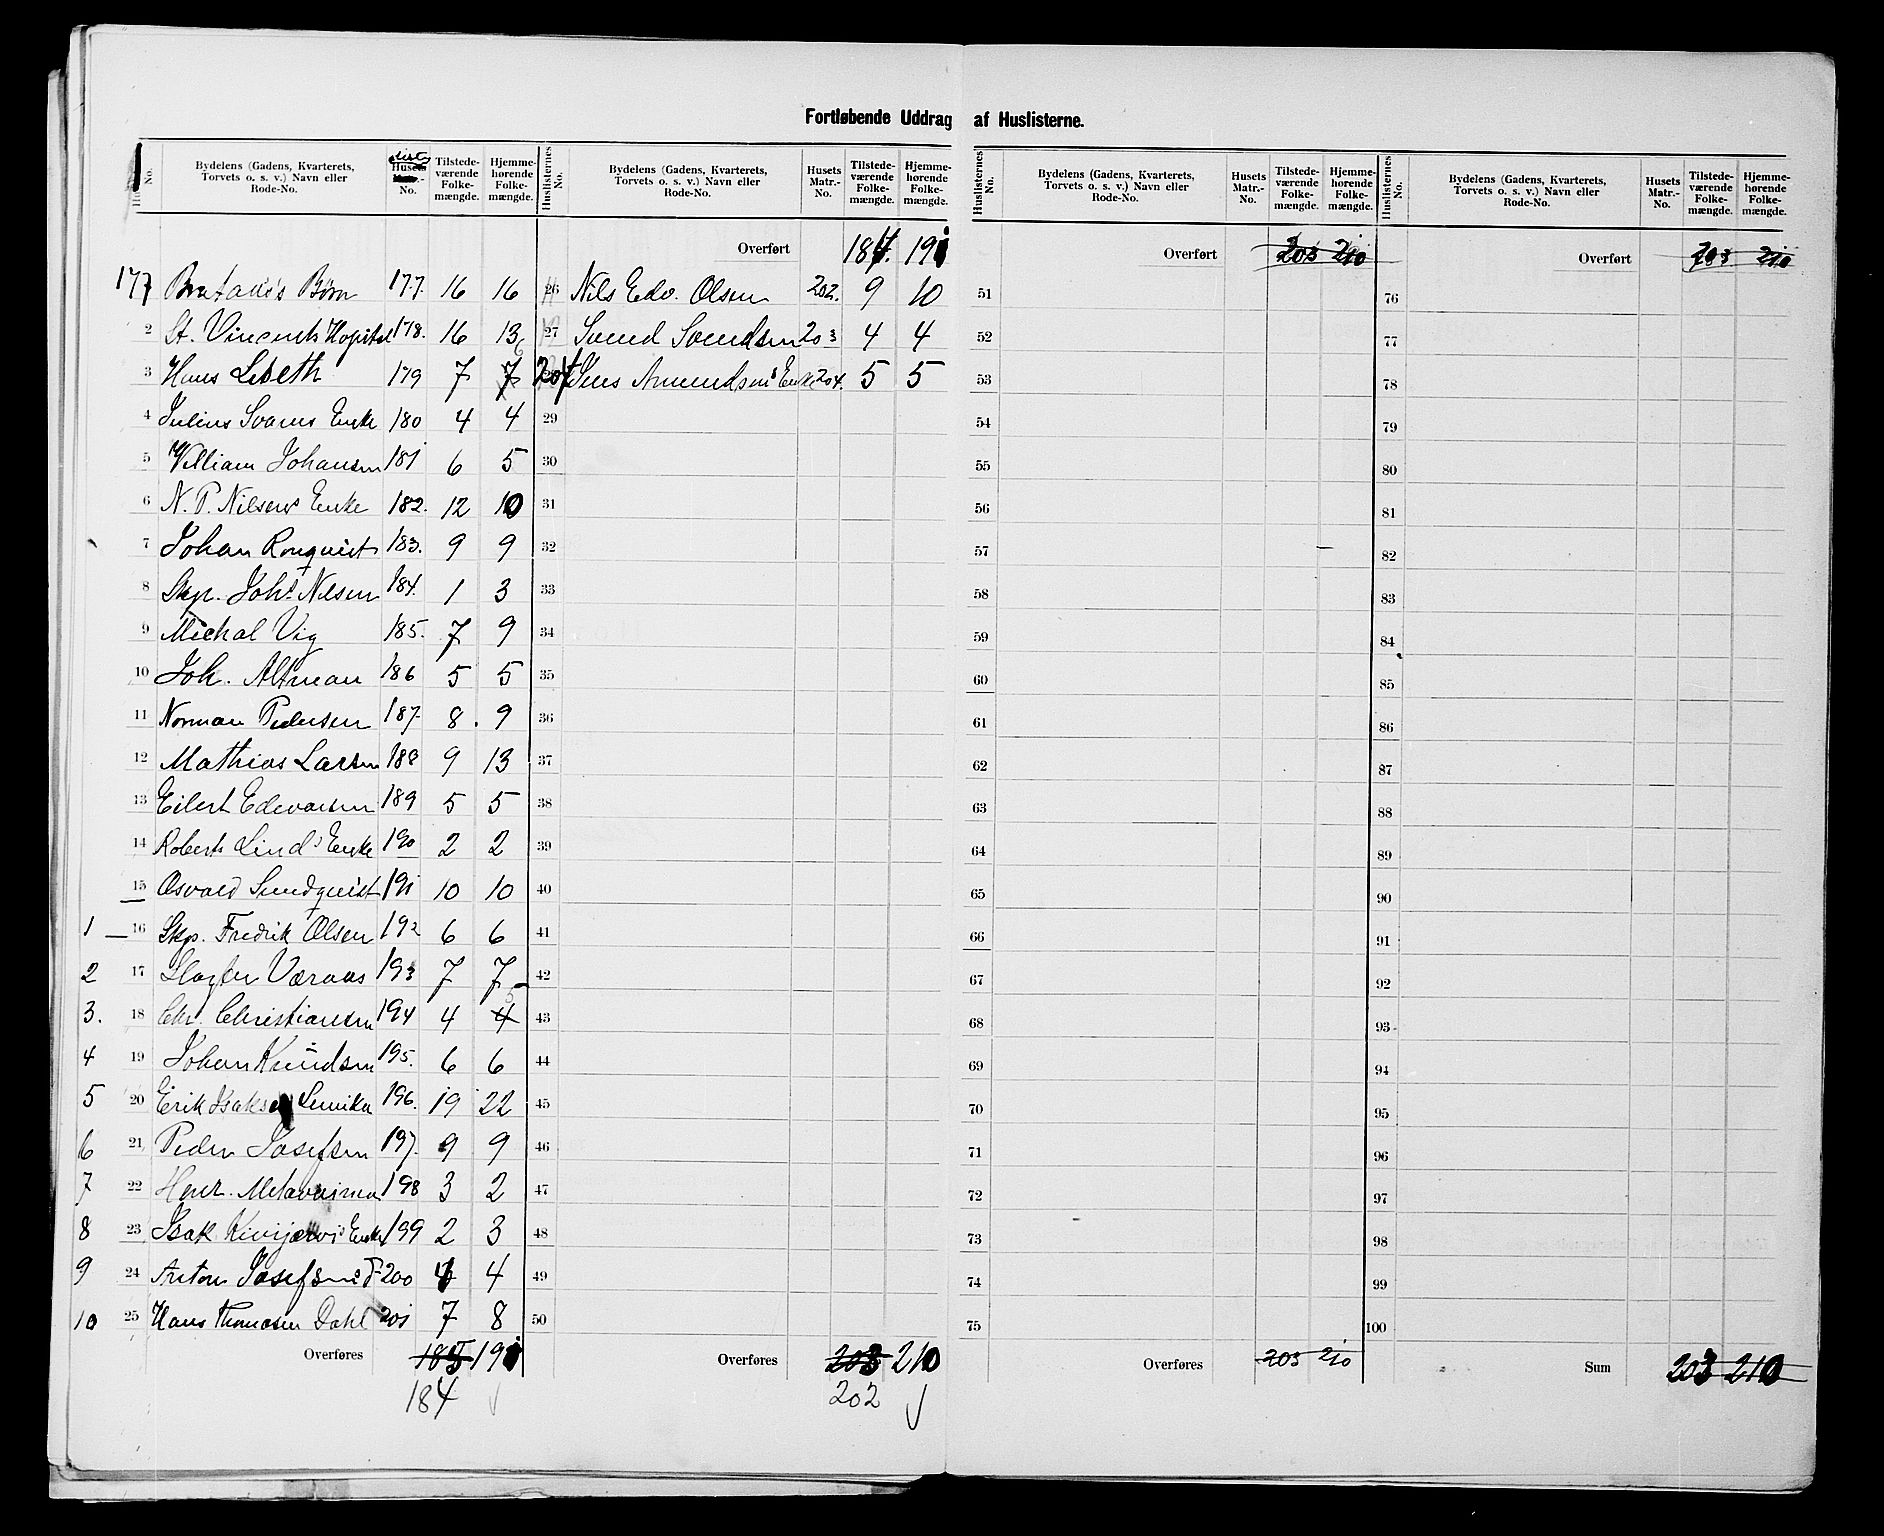 Fortløbende Uddrag af Huslisterne.
No. Bydelens (Gadens, Kvarterets, Torvets o. s. v.) Navn eller Rode-No. Liste No. Tilstedeværende Folkemængde. Hjemmehørende Folkemængde.
Huslisternes No. Bydelens (Gadens, Kvarterets, Torvets o. s. v.) Navn eller Rode-No. Husets Matr.-No. Tilstedeværende Folkemængde. Hjemmehørende Folkemængde.
177 Børn 177. 16 16
2 St. Vincents Hospital 178. 16 13
3 Hans Lisbeth 179 7 7 6
4 Julius Svanes Enke 180 4 4
5 William Johansen 181 6 5
6 N. P. Nilsens Enke 182. 12 10
7 Johan Ronquist 183. 9 9
8 Skpr. Johs Nilsen 184. 1 3
9 Michal Vig 185. 7 9
10 Joh. Altman 186 5 5
11 Norman Pedersen 187. 8. 9
12 Mathias Larsen 188 9 13
13 Eilert Edevarsen 189 5 5
14 Roberts Lind's Enke 190 2 2
15 Osvald Sundquist 191 10 10
1 16 Skp. Fredrik Olsen 192 6 6
2 17 Slagter Væraas 193 7 7
3. 18 Chr. Christiansen 194 4 4 5
4 19 Johan Knudsen 195. 6 6
5 20 Erik Isaksen 196. 19 22
6 21 Peder Josefsen 197. 9 9
7 22 Henr. 198 3 2
8 23 Isak Kivijervis Enke 199 2 3
9 24 Anton Josefsens 200 4 4
10 25 Hans Thomasen Dahl 201 7 8
Overføres 185 191
184
Overført 184. 191
26 Nils Edv. Olsen 202. 9 10
27 Svend Svendsen 203 4 4
204 Jens Amundsens Enke 204. 5 5
29
30
31
32
33
34
35
36
37
38
39
40
41
42
43
44
45
46
47
48
49
50
Overføres 203 210
202
Huslisternes No. Bydelens (Gadens, Kvarterets, Torvets o. s. v.) Navn eller Rode-No. Husets Matr.-No. Tilstedeværende Folkemængde. Hjemmehørende Folkemængde.
Overført 203 210
51
52
53
54
55
56
57
58
59
60
61
62
63
64
65
66
67
68
69
70
71
72
73
74
75
Overføres 203 210
Huslisternes No. Bydelens (Gadens, Kvarterets, Torvets o. s. v.) Navn eller Rode-No. Husets Matr.-No. Tilstedeværende Folkemængde. Hjemmehørende Folkemængde.
Overført 203 210
76
77
78
79
80
81
82
83
84
85
86
87
88
89
90
91
92
93
94
95
96
97
98
99
100
Sum 203 210